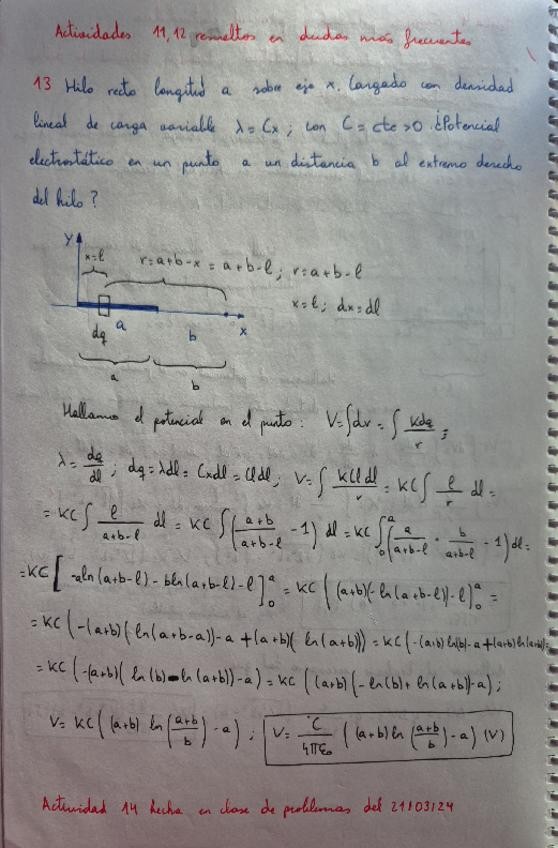 Actividades 11, 12 resueltos en dudas más frecuentes
13 Hilo recto longitud a sobre eje x. Cargado con densidad
lineal de carga variable λ = Cx ; con C = cte > 0. ¿Potencial
electrostático en un punto a un distancia b al extremo derecho
del hilo?
y
x=l
r = a+b-x = a+b-l ; r = a+b-l
x=l ; dx=dl
dq
a
b
x
a
b
Hallamos el potencial en el punto: V = ∫dv = ∫ Kdq/r ;
λ = dq/dl ; dq = λdl = Cxdl = Cldl ; V = ∫ KCldl/r = KC ∫ l/r dl =
= KC ∫ l/(a+b-l) dl = KC ∫ ((a+b)/(a+b-l) - 1) dl = KC ∫₀ᵃ (a/(a+b-l) + b/(a+b-l) - 1) dl =
= KC [ -aln(a+b-l) - bln(a+b-l) - l ]₀ᵃ = KC ( (a+b)(-ln(a+b-l)) - l )₀ᵃ =
= KC ( -(a+b)( ln(a+b-a)) - a + (a+b)( ln(a+b)) ) = KC ( -(a+b) ln(b) - a + (a+b) ln(a+b)) =
= KC ( -(a+b)( ln(b) - ln(a+b)) - a) = KC ( (a+b)( -ln(b) + ln(a+b)) - a) ;
V = KC ( (a+b) ln ((a+b)/b) - a ) ; V = C/4πε₀ ( (a+b) ln ((a+b)/b) - a ) (V)
Actividad 14 hecha en clase de problemas del 21/03/24